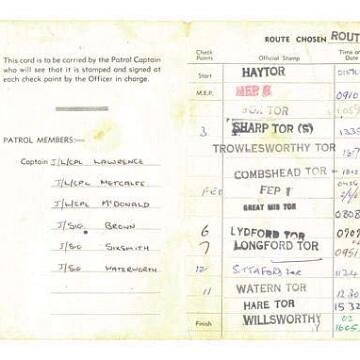 This card is to be carried by the Patrol Captain
who will see that it is stamped and signed at
each check point by the Officer in charge.
PATROL MEMBERS:—
Captain J/L/CPL LAWRENCE
J/L/CPL METCALFE
J/L/CPL McDONALD
J/SIG BROWN
J/SIG SIXSMITH
J/SIG WATERWORTH
ROUTE CHOSEN ROUT
Check Points Official Stamp Time or Date
Start HAYTOR
M.E.P. MEP 0910
TOR
3 SHARP TOR (S) 1335
TROWLESWORTHY TOR
COMBSHEAD TOR
FEP 1
GREAT MIS TOR 0808
6 LYDFORD TOR 0909
7 LONGFORD TOR 0951
12 SITTAFORD TOR 1124
11 WATERN TOR 1230
HARE TOR 1532
Finish WILLSWORTHY 1605